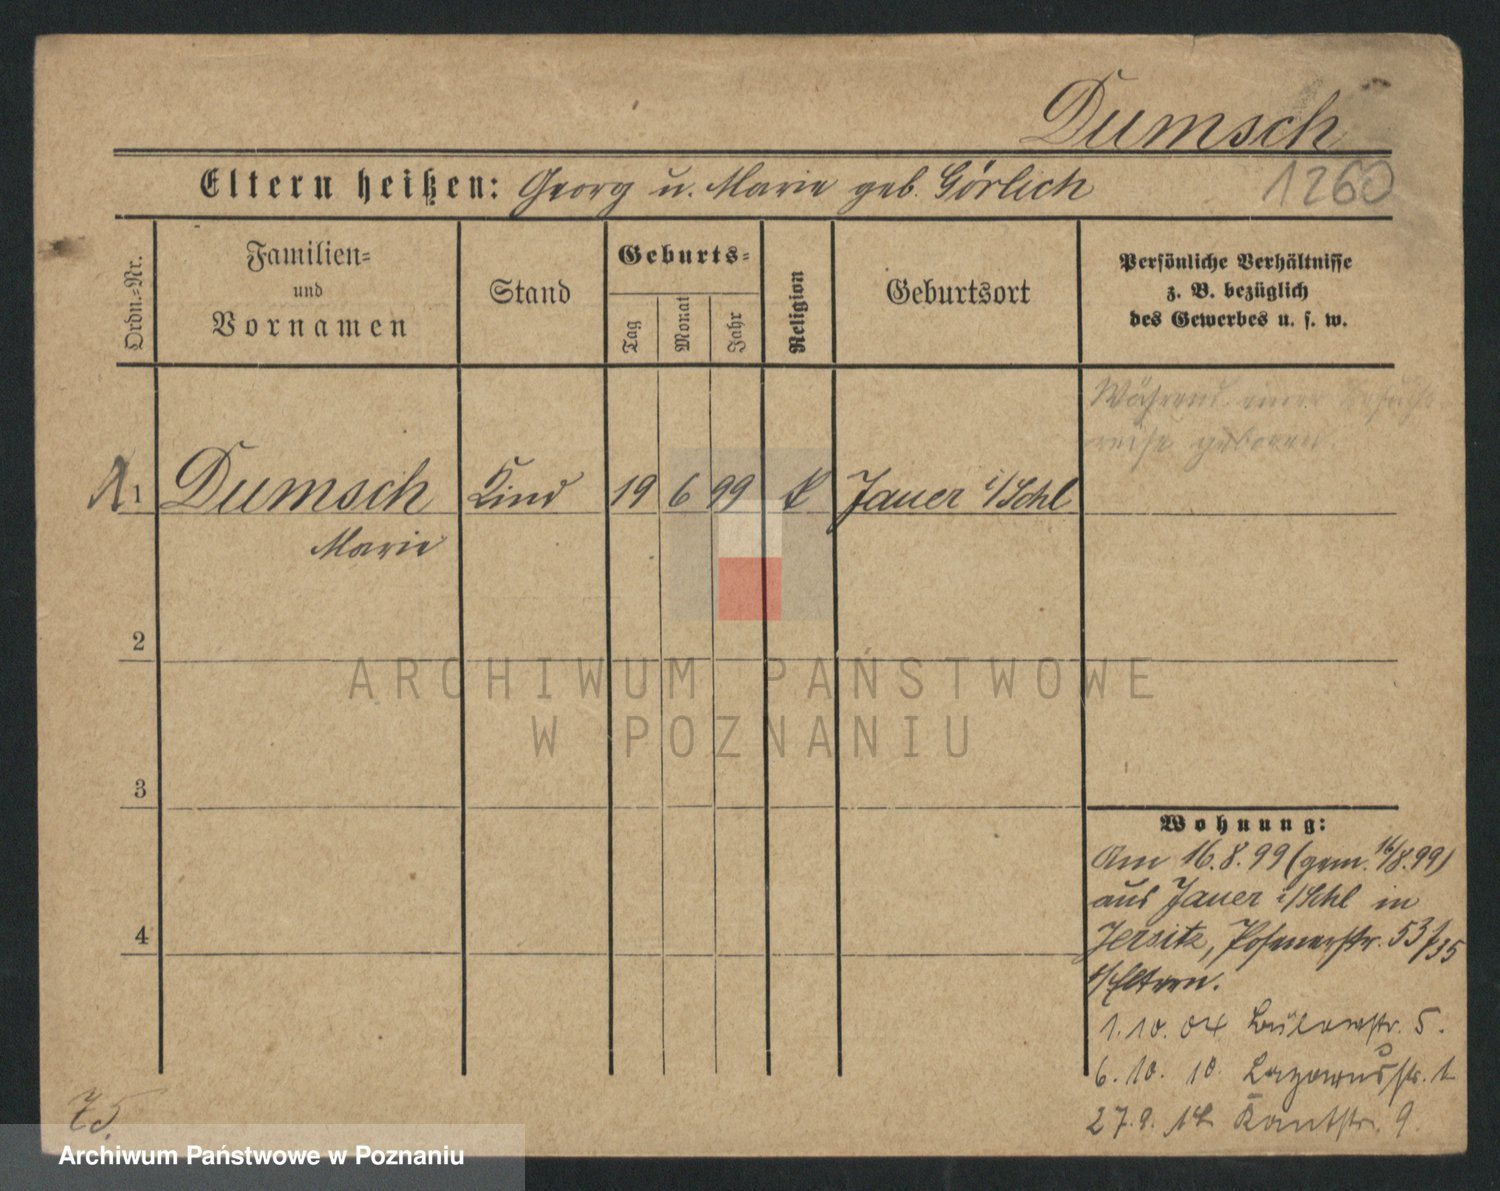 Dumsch
Eltern heißen: Georg u. Marie geb. Görlich
1260
Ordn.-Nr.
Familien-
und
Vornamen
Stand
Geburts-
Tag
Monat
Jahr
Religion
Geburtsort
Persönliche Verhältnisse
z. B. bezüglich
des Gewerbes u. s. w.
Während einer
reise geboren.
1 Dumsch Kind 19 6 99 Jauer i/Schl
Marie
2
3
4
ARCHIWUM PAŃSTWOWE
W POZNANIU
Wohnung:
Am 16.8.99 (gem. 16/8.99)
aus Jauer i/Schl in
Jersitz, Posenerstr. 53/35
Eltern.
1.10.04 Bülowstr. 5.
6.10.10 Lazarusstr. 1
27.9.14 Kantstr. 9.
75.
Archiwum Państwowe w Poznaniu